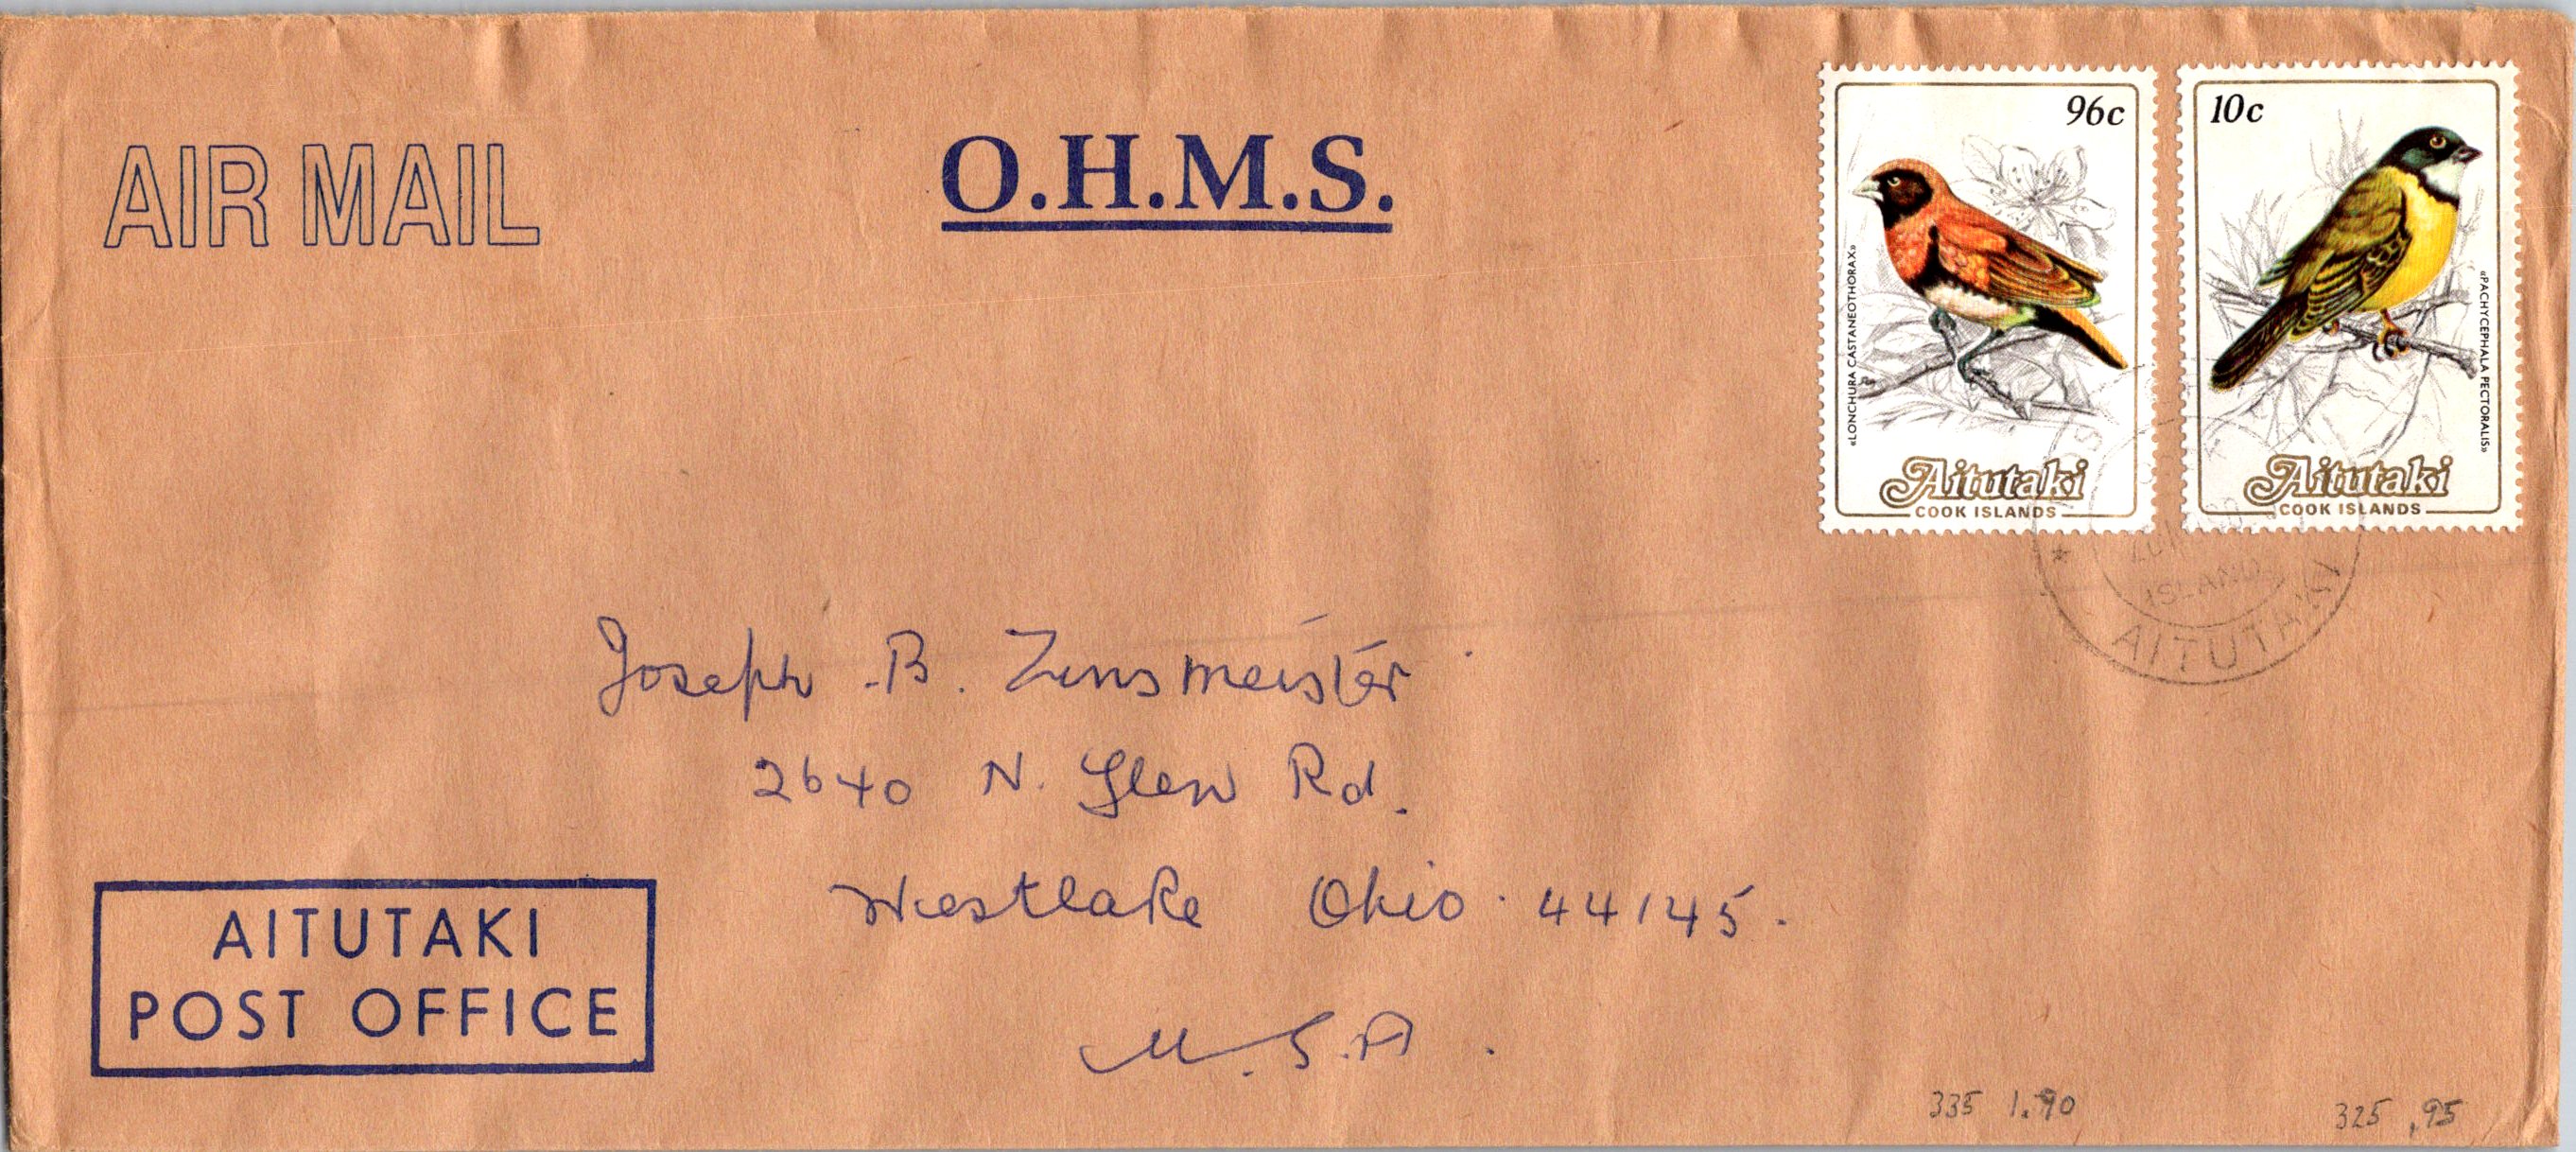 AIR MAIL
O.H.M.S.
96c
«LONCHURA CASTANEOTHORAX»
Aitutaki
COOK ISLANDS
10c
«PACHYCEPHALA PECTORALIS»
Aitutaki
COOK ISLANDS
ISLAND
AITUTAKI
Joseph B. Zinsmeister
2640 N. Glen Rd.
Westlake Ohio. 44145.
U.S.A.
AITUTAKI
POST OFFICE
335 1.90
325 .95